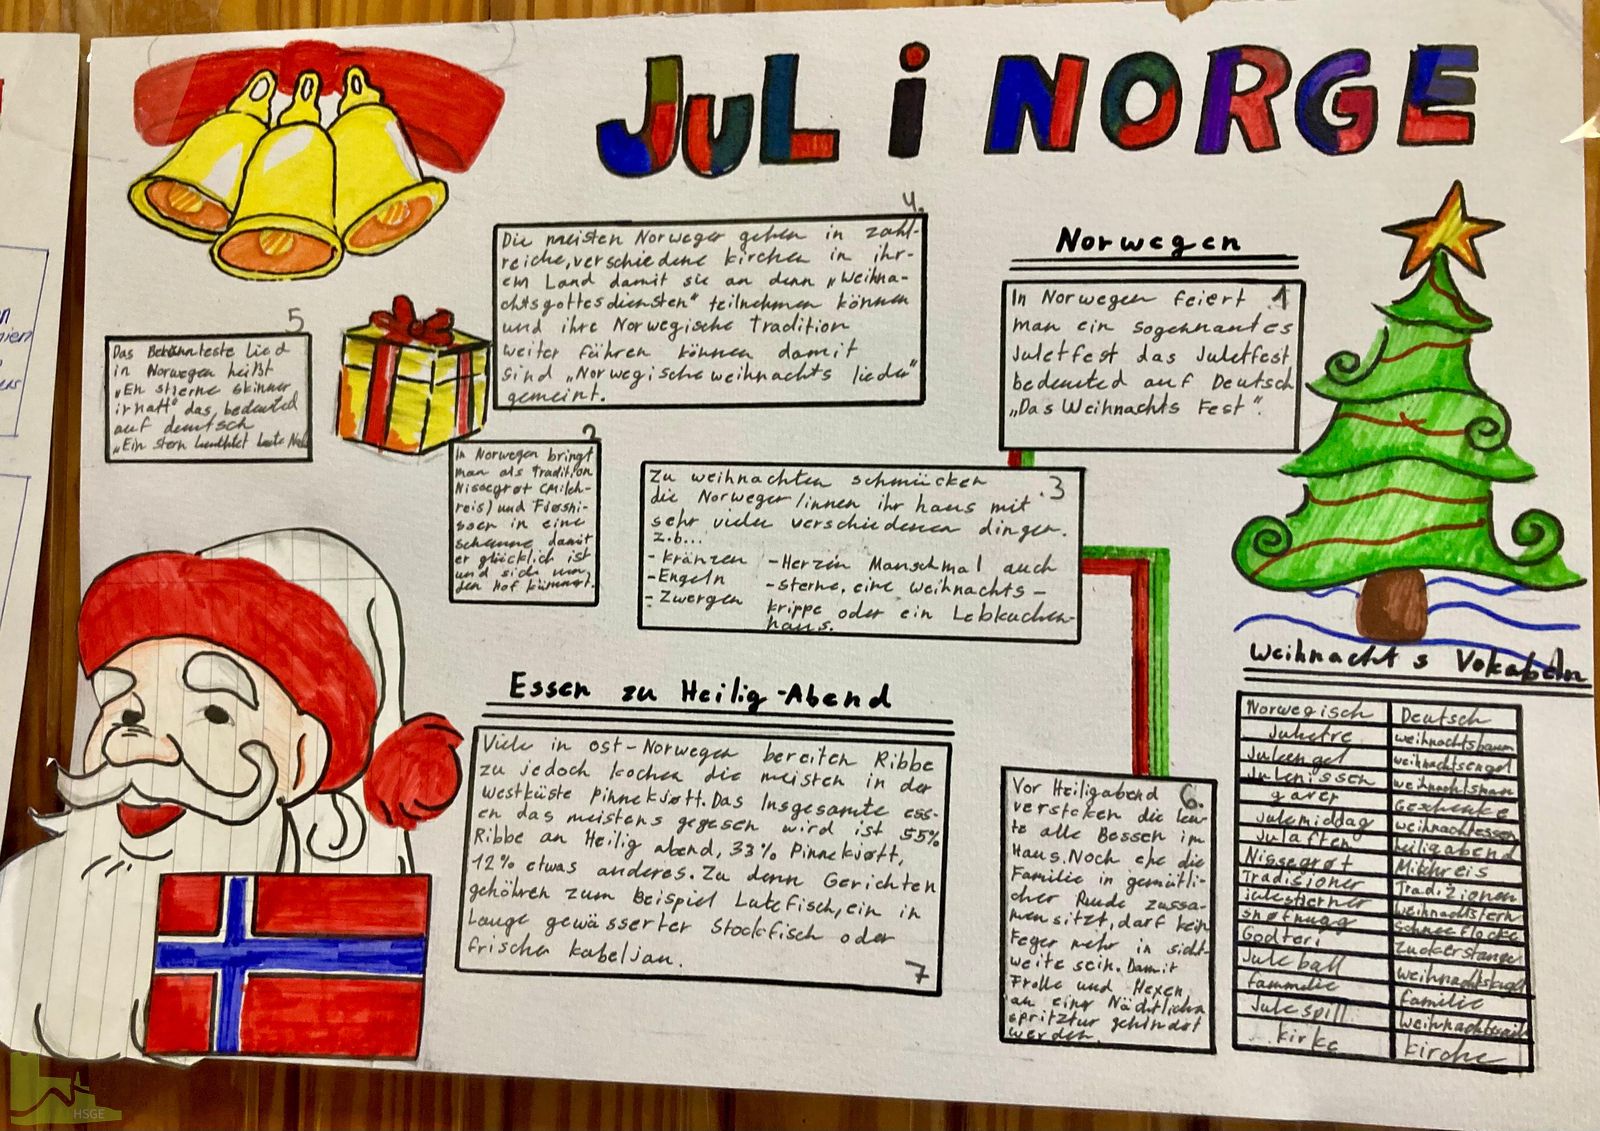 JUL i NORGE
Norwegen
1
In Norwegen feiert
man ein sogennantes
Juletfest das Juletfest
bedeuted auf Deutsch
„Das Weihnachts Fest“.
2
In Norwegen bringt
man als Tradition
Nissegrøt (Milch-
reis) und Fjøsni-
ssen in eine
scheune damit
er glücklich ist
und sich um
den Hof kümmert.
.3
Zu weihnachten schmücken
die Norweger/innen ihr haus mit
sehr vielen verschiedenen dingen.
z.b...
- Kränzen
- Engeln
- Zwergen
- Herzen Manschmal auch
- sterne, eine weihnachts-
krippe oder ein Lebkuchen-
haus.
4.
Die meisten Norweger gehen in zahl-
reiche, verschiedene kirchen in ihr-
em Land damit sie an denn „Weihna-
chtsgottesdiensten“ teilnehmen können
und ihre Norwegische Tradition
weiter führen können damit
sind „Norwegische weihnachts lieder“
gemeint.
5
Das Bekannteste Lied
in Norwegen heißt
„En stjerne skinner
i natt“ das bedeuted
auf deutsch
„Ein stern leuchtet
6.
Vor Heiligabend
verstecken die leu-
te alle Bessen im
Haus. Noch ehe die
Familie in gemütli-
cher Runde zussa-
men sitzt, darf kein
Feger mehr in sicht-
weite sein. Damit
Trolle und Hexen
an einer Nächtlichen
spritztur gehindert
werden.
Essen zu Heilig-Abend
Viele in ost-Norwegen bereiten Ribbe
zu jedoch kochen die meisten in der
westküste Pinnekjøtt. Das Insgesamte ess-
en das meistens gegesen wird ist 55%
Ribbe an Heilig abend, 33% Pinnekjøtt,
12% etwas anderes. Zu denn Gerichten
gehöhren zum Beispiel Lutefisch, ein in
Lauge gewässerter Stockfisch oder
frischer kabeljau.
7
Weihnachts Vokabeln
Norwegisch Deutsch
Juletre weihnachtsbaum
Juleengel weihnachtsengel
Julenissen weihnachtsman
gaver Geschenke
Julemiddag weihnachtessen
Julaften heiligabend
Nissegrøt Milchreis
Tradisjoner Tradizionen
julestjerner weihnachtstern
snøfnugg schneeflocke
Godteri zuckerstange
Juleball weihnachtskugel
fammilie familie
Julespill
kirke kirche
HSGE